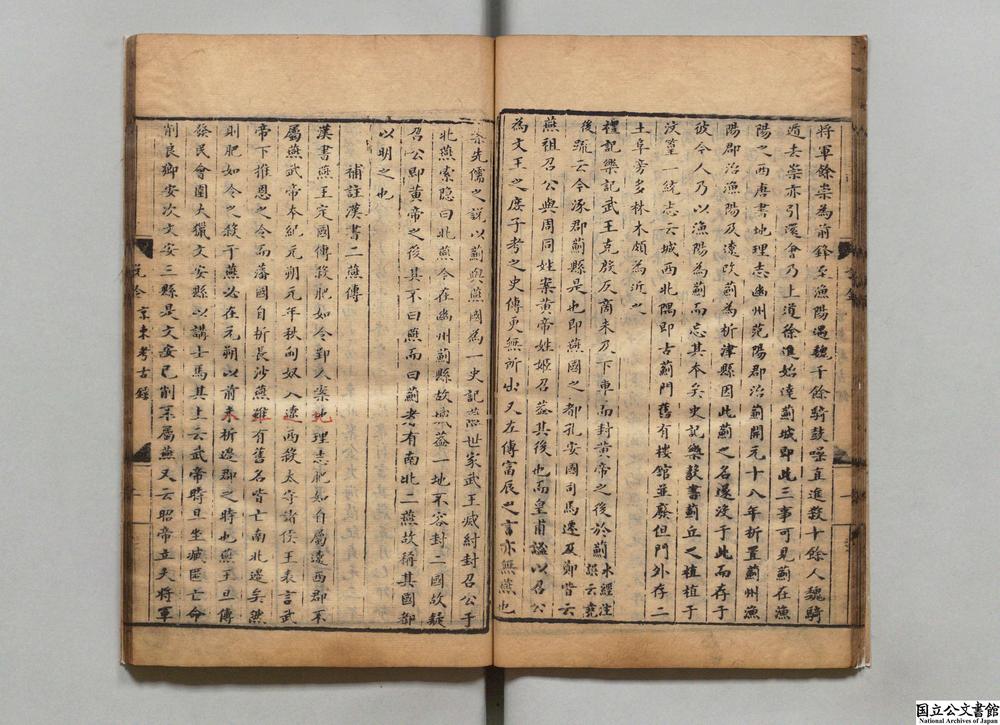 將軍餘崇為前鋒至漁陽遇魏千餘騎鼓噪直進殺十餘人魏騎
遁去崇亦引還會乃上道徐進始達薊城即此三事可見薊在漁
陽之西唐書地理志幽州范陽郡治薊開元十八年析置薊州漁
陽郡治漁陽及遼改薊為析津縣因此薊之名遂沒于此而存于
彼今人乃以漁陽為薊而忘其本矣史記樂毅書薊丘之植植于
汶篁一統志云城西北隅即古薊門舊有樓館並廢但門外存二
土阜旁多林木頗為近之
禮記樂記武王克殷反商未及下車而封黃帝之後於薊水經注
梁云堯
後疏云今涿郡薊縣是也即燕國之都孔安國司馬遷及鄭皆云
燕祖召公與周同姓案黃帝姓姬召蓋其後也而皇甫謐以召公
為文王之庶子考之史傳更無所出又左傳富辰之言亦無燕也
案先儒之說以薊與燕國為一史記燕世家武王滅紂封召公于
北燕索隱曰北燕今在幽州薊縣故城蓋一地不容封二國故疑
召公即黃帝之後其不曰燕而曰薊者有南北二燕故稱其國都
以明之也
補註漢書二燕傳
漢書燕王定國傳殺肥如令郢人案地理志肥如自屬遼西郡不
屬燕武帝本紀元朔元年秋匈奴入遼西殺太守諸侯王表言武
帝下推恩之令而藩國自析長沙燕雖有舊名皆亡南北邊矣然
則肥如令之殺于燕必在元朔以前未析邊郡之時也燕王旦傳
發民會圍大獵文安縣以講士馬其上云武帝時旦坐臧匿亡命
削良鄉安次文安三縣是文安已削不屬燕又云昭帝立大將軍
京東考古錄
国立公文書館
National Archives of Japan